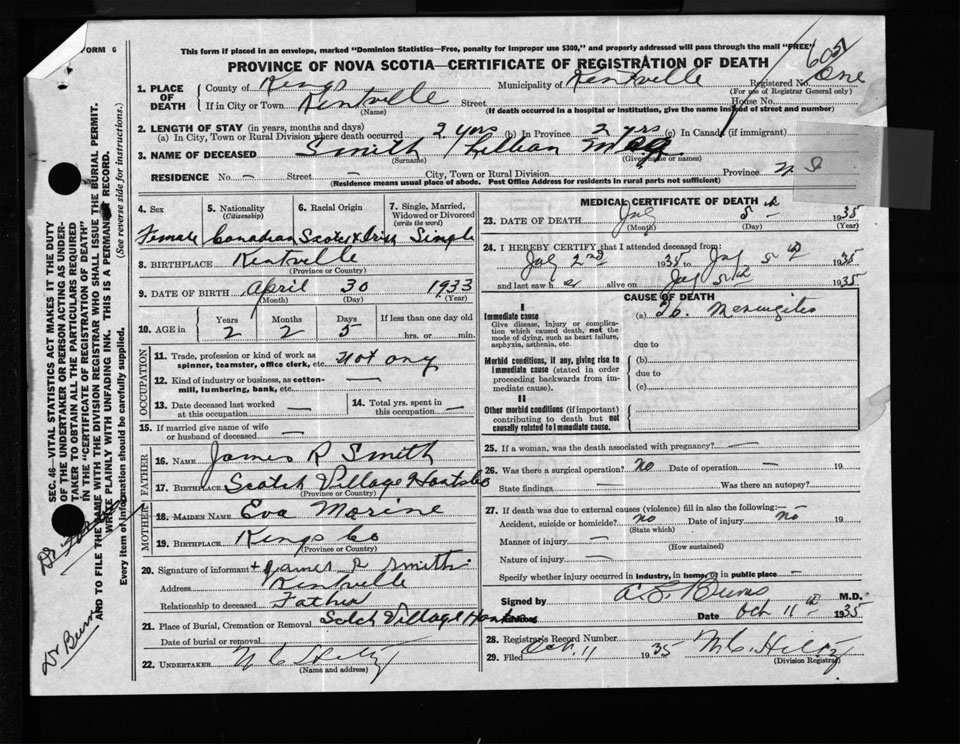 FORM 6
This form if placed in an envelope, marked "Dominion Statistics—Free, penalty for improper use $300," and properly addressed will pass through the mail "FREE"
PROVINCE OF NOVA SCOTIA—CERTIFICATE OF REGISTRATION OF DEATH
1. PLACE OF DEATH
County of Kings Municipality of Kentville Registered No. One
(For use of Registrar General only)
If in City or Town Kentville Street House No.
(Name) (If death occurred in a hospital or institution, give the name instead of street and number)
2. LENGTH OF STAY (in years, months and days)
(a) In City, Town or Rural Division where death occurred 2 yrs (b) In Province 2 yrs (c) In Canada (if immigrant)
3. NAME OF DECEASED Smith Lillian
(Surname) (Given name or names)
RESIDENCE No. — Street — City, Town or Rural Division Province N S
(Residence means usual place of abode. Post Office Address for residents in rural parts not sufficient)
4. Sex 5. Nationality (Citizenship) 6. Racial Origin 7. Single, Married, Widowed or Divorced (write the word)
Female Canadian Scotch & Irish Single
8. BIRTHPLACE Kentville
(Province or Country)
9. DATE OF BIRTH April 30 1933
(Month) (Day) (Year)
10. AGE in Years Months Days If less than one day old
2 2 5 hrs. or min.
OCCUPATION
11. Trade, profession or kind of work as spinner, teamster, office clerk, etc. Not any
12. Kind of industry or business, as cotton-mill, lumbering, bank, etc. —
13. Date deceased last worked at this occupation —
14. Total yrs. spent in this occupation —
15. If married give name of wife or husband of deceased —
FATHER
16. NAME James R Smith
17. BIRTHPLACE Scotch Village Hants Co
(Province or Country)
MOTHER
18. MAIDEN NAME Eva Marine
19. BIRTHPLACE Kings Co
(Province or Country)
20. Signature of informant + James R Smith
Address Kentville
Relationship to deceased Father
21. Place of Burial, Cremation or Removal Scotch Village Hants
Date of burial or removal
22. UNDERTAKER
(Name and address)
MEDICAL CERTIFICATE OF DEATH
23. DATE OF DEATH July 5th 1935
(Month) (Day) (Year)
24. I HEREBY CERTIFY that I attended deceased from:
July 2nd 1935 to July 5th 1935
and last saw her alive on July 5th 1935
CAUSE OF DEATH
I
Immediate cause
Give disease, injury or complication which caused death, not the mode of dying, such as heart failure, asphyxia, asthenia, etc.
(a) Tb. Meningitis
due to
Morbid conditions, if any, giving rise to immediate cause (stated in order proceeding backwards from immediate cause).
(b)
due to
(c)
II
Other morbid conditions (if important) contributing to death but not causally related to immediate cause.
25. If a woman, was the death associated with pregnancy? —
26. Was there a surgical operation? No Date of operation — 19
State findings — Was there an autopsy?
27. If death was due to external causes (violence) fill in also the following:—
Accident, suicide or homicide? no Date of injury no 19
(State which)
Manner of injury —
(How sustained)
Nature of injury —
Specify whether injury occurred in industry, in home, or in public place —
Signed by M.D.
Date Oct 11th 1935
28. Registrar's Record Number
29. Filed Oct. 11 1935
(Division Registrar)
SEC. 46—VITAL STATISTICS ACT MAKES IT THE DUTY
OF THE UNDERTAKER OR PERSON ACTING AS UNDER-
TAKER TO OBTAIN ALL THE PARTICULARS REQUIRED
IN THE "CERTIFICATE OF REGISTRATION OF DEATH"
AND TO FILE THE SAME WITH THE DIVISION REGISTRAR WHO SHALL ISSUE THE BURIAL PERMIT.
WRITE PLAINLY WITH UNFADING INK. THIS IS A PERMANENT RECORD.
Every item of information should be carefully supplied. (See reverse side for instructions.)
Dr Burns